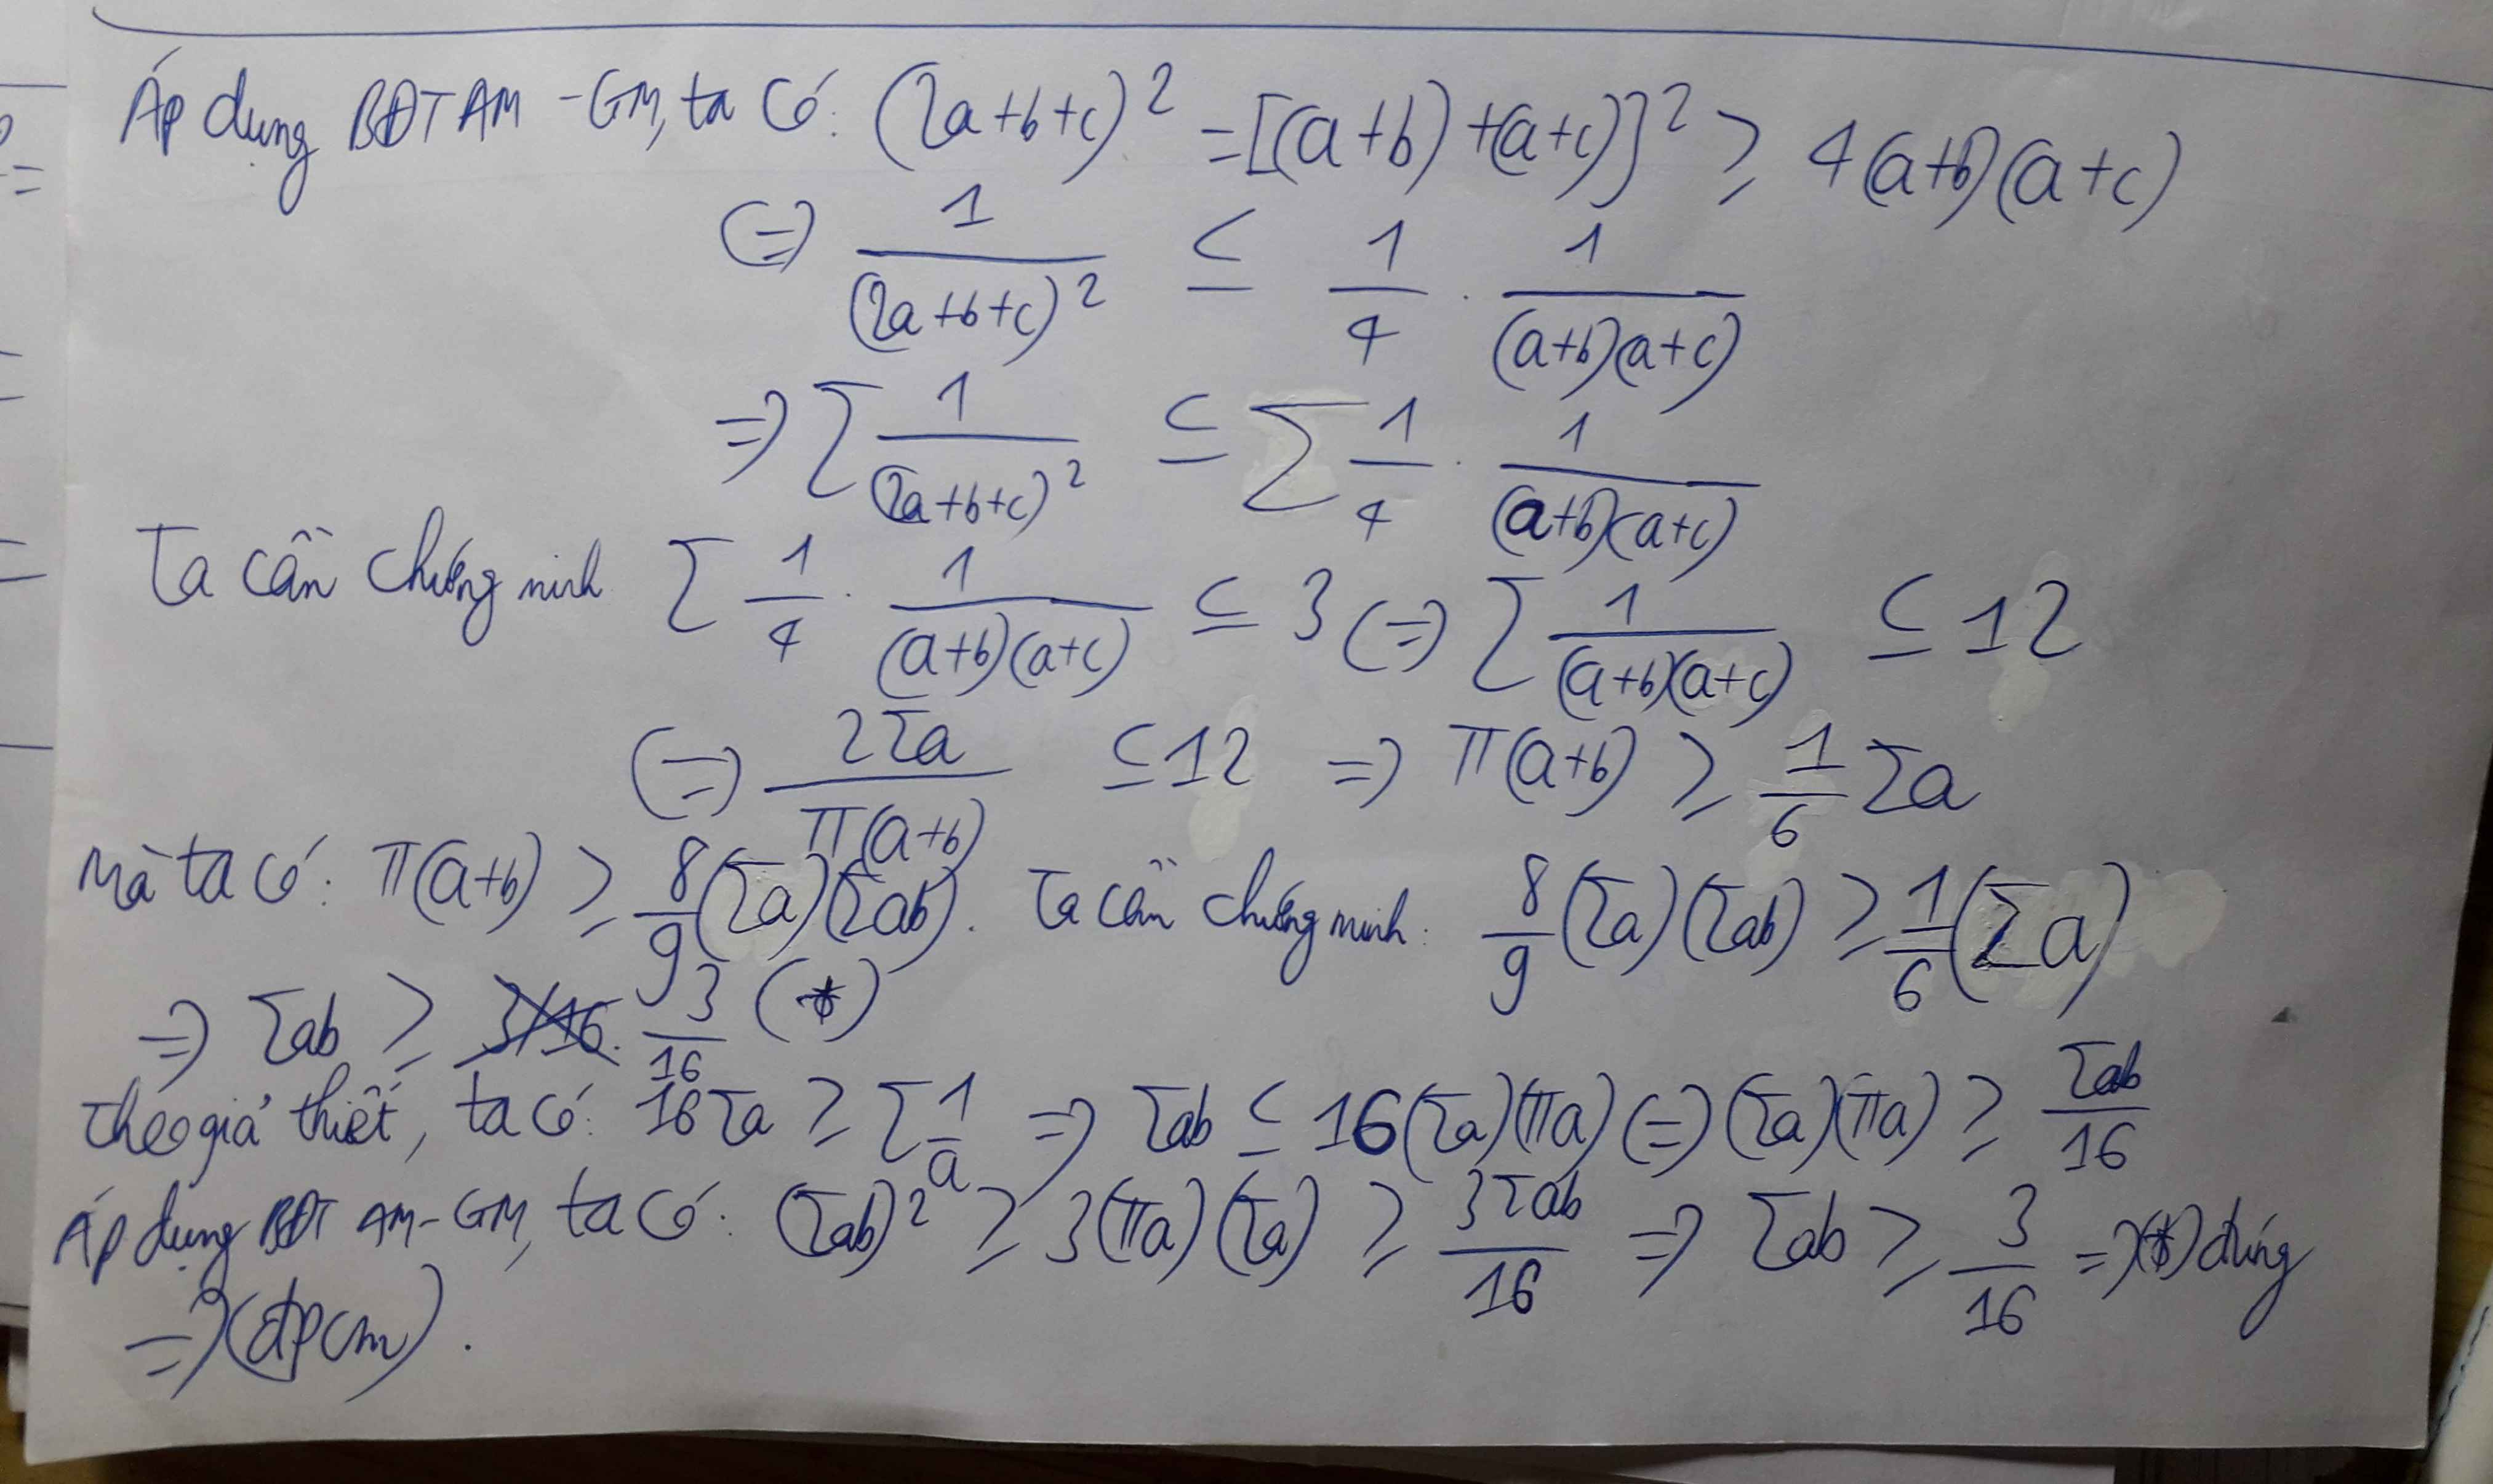 Áp dụng BĐT AM-GM, ta có: (2a+b+c)² = [(a+b)+(a+c)]² ≥ 4(a+b)(a+c)
(=) 1/(2a+b+c)² ≤ 1/4 . 1/((a+b)(a+c))
=> Σ 1/(2a+b+c)² ≤ Σ 1/4 . 1/((a+b)(a+c))
Ta cần chứng minh Σ 1/4 . 1/((a+b)(a+c)) ≤ 3 (=) Σ 1/((a+b)(a+c)) ≤ 12
(=) 2Σa/π(a+b) ≤ 12 => π(a+b) ≥ 1/6 Σa
Mà ta có: π(a+b) ≥ 8/9 (Σa)(Σab). Ta cần chứng minh: 8/9 (Σa)(Σab) ≥ 1/6 (Σa)
=> Σab ≥ 3/16 (*)
Theo giả thiết, ta có: 16Σa ≥ Σ 1/a => Σab ≤ 16(Σa)(πa) (=) (Σa)(πa) ≥ Σab/16
Áp dụng BĐT AM-GM, ta có: (Σab)² ≥ 3(πa)(Σa) ≥ 3Σab/16 => Σab ≥ 3/16 => (*) đúng
=> (đpcm).